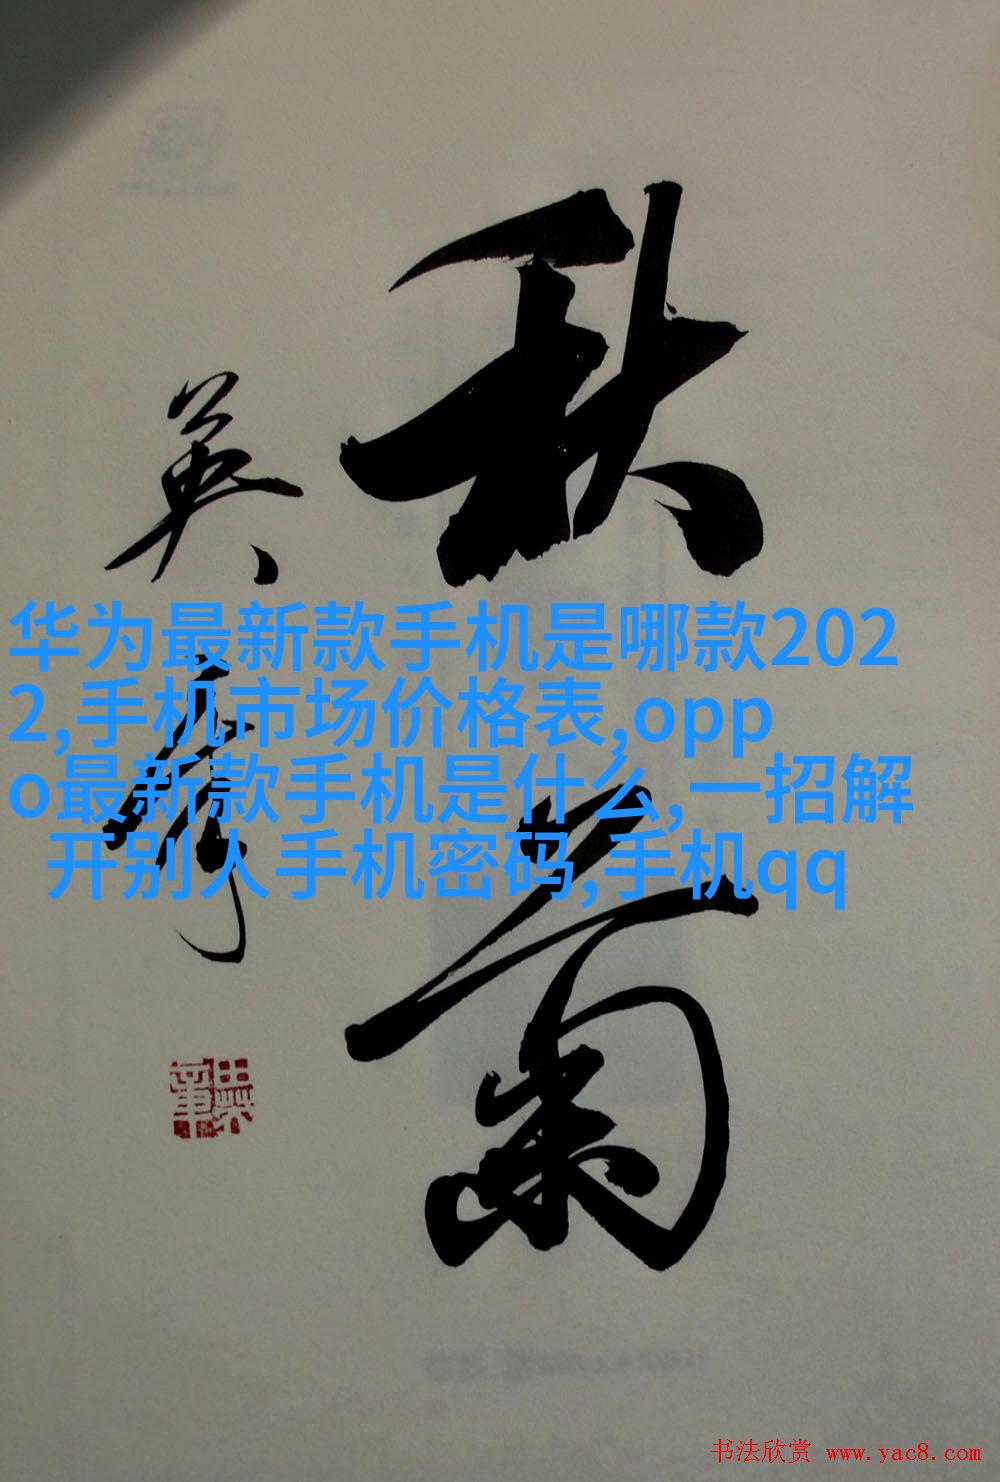 秋菊
英章
华为最新款手机是哪款202
2,手机市场价格表,opp
o最新款手机是什么,一招解
开别人手机密码,手机qq
书法欣赏 www.yac8.com